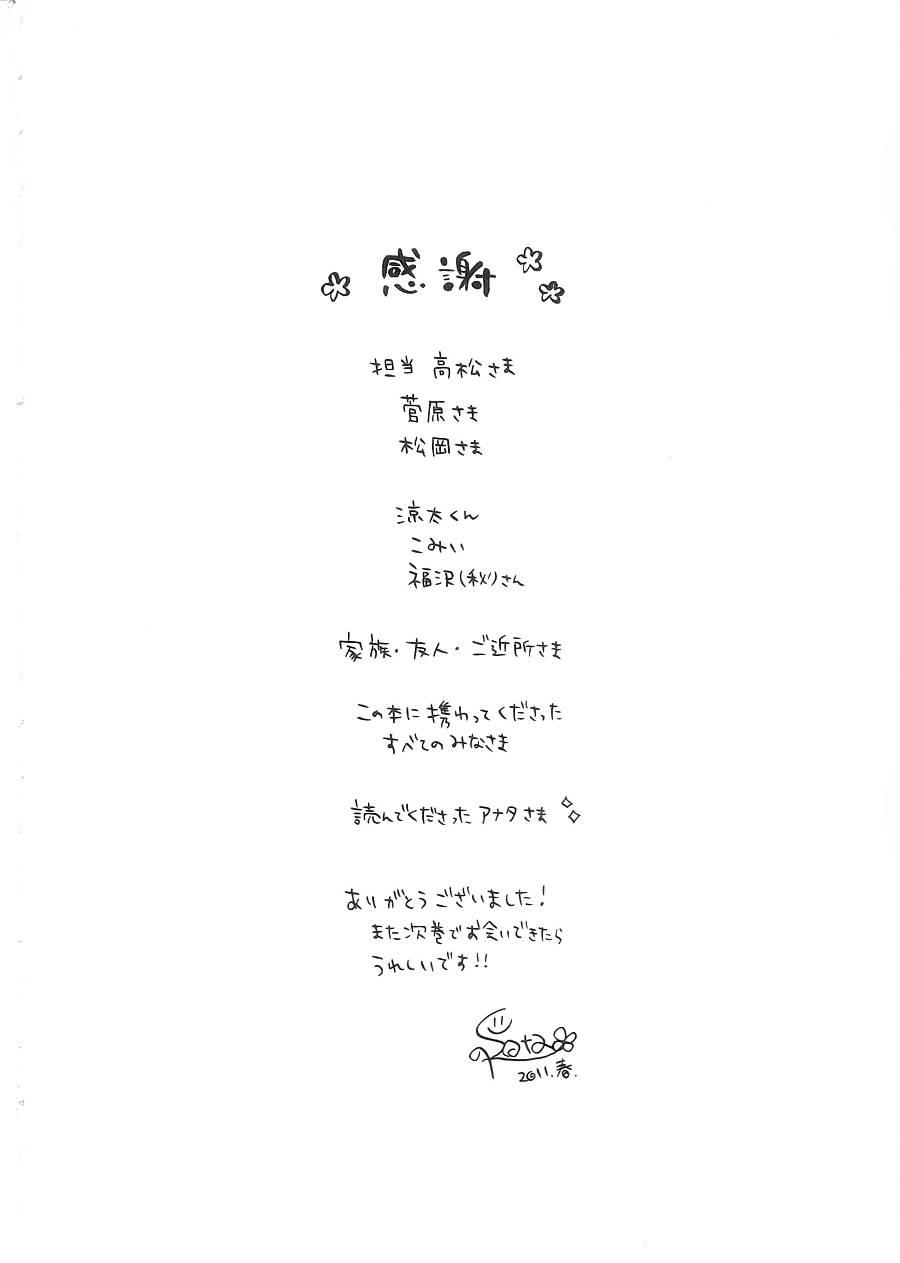 感謝
担当 高松さま
菅原さま
松岡さま
涼太くん
こみい
福沢(秋)さん
家族・友人・ご近所さま
この本に携わってくださった
すべてのみなさま
読んでくださったアナタさま
ありがとうございました!
また次巻でお会いできたら
うれしいです!!
2011.春.